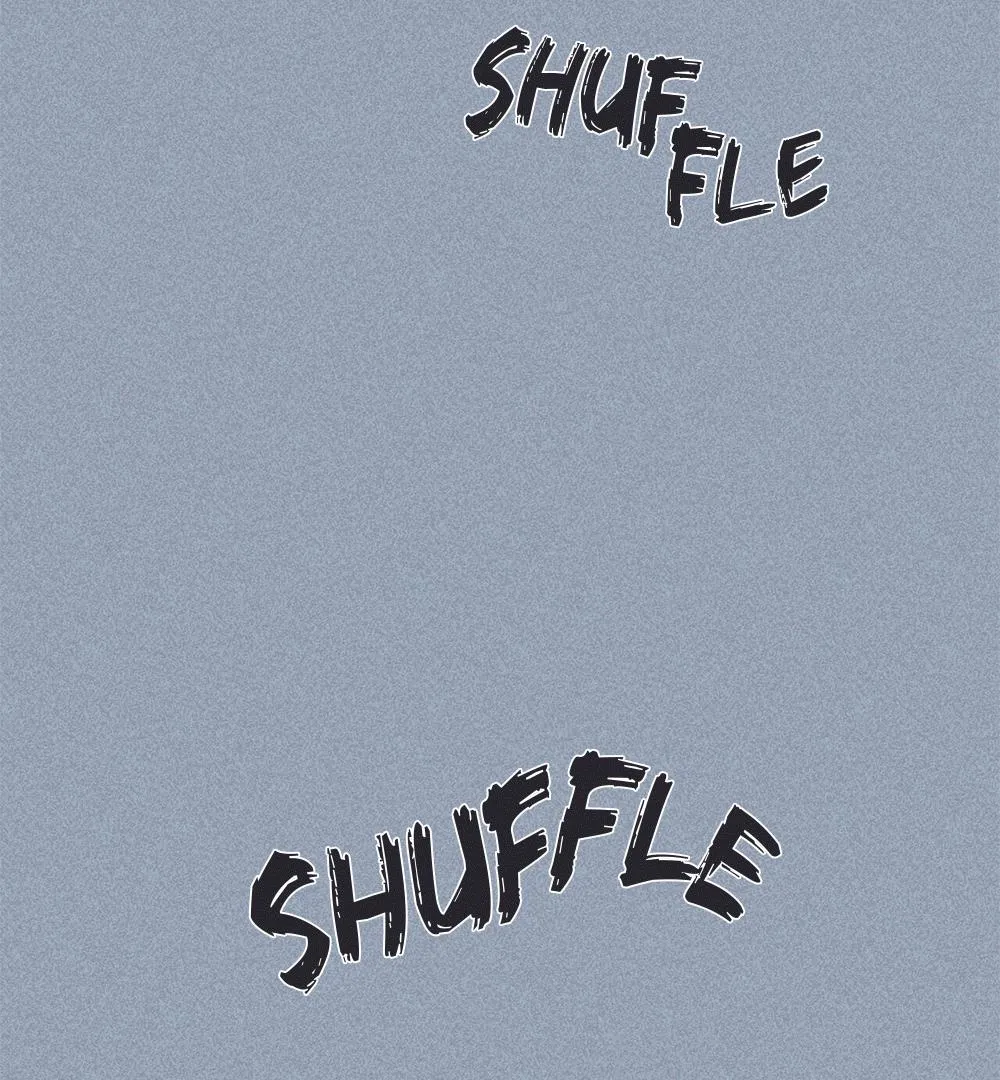 SHUF
FLE
SHUFFLE